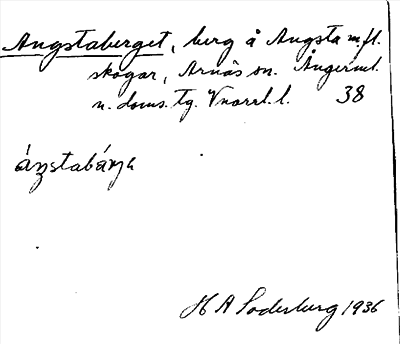 Angstaberget, berg å Angsta m.fl.
skogar, Arnäs sn. Ångerml.
n. doms. tg. Vnorrl. l. 38
ánstabárja
H A Söderberg 1936